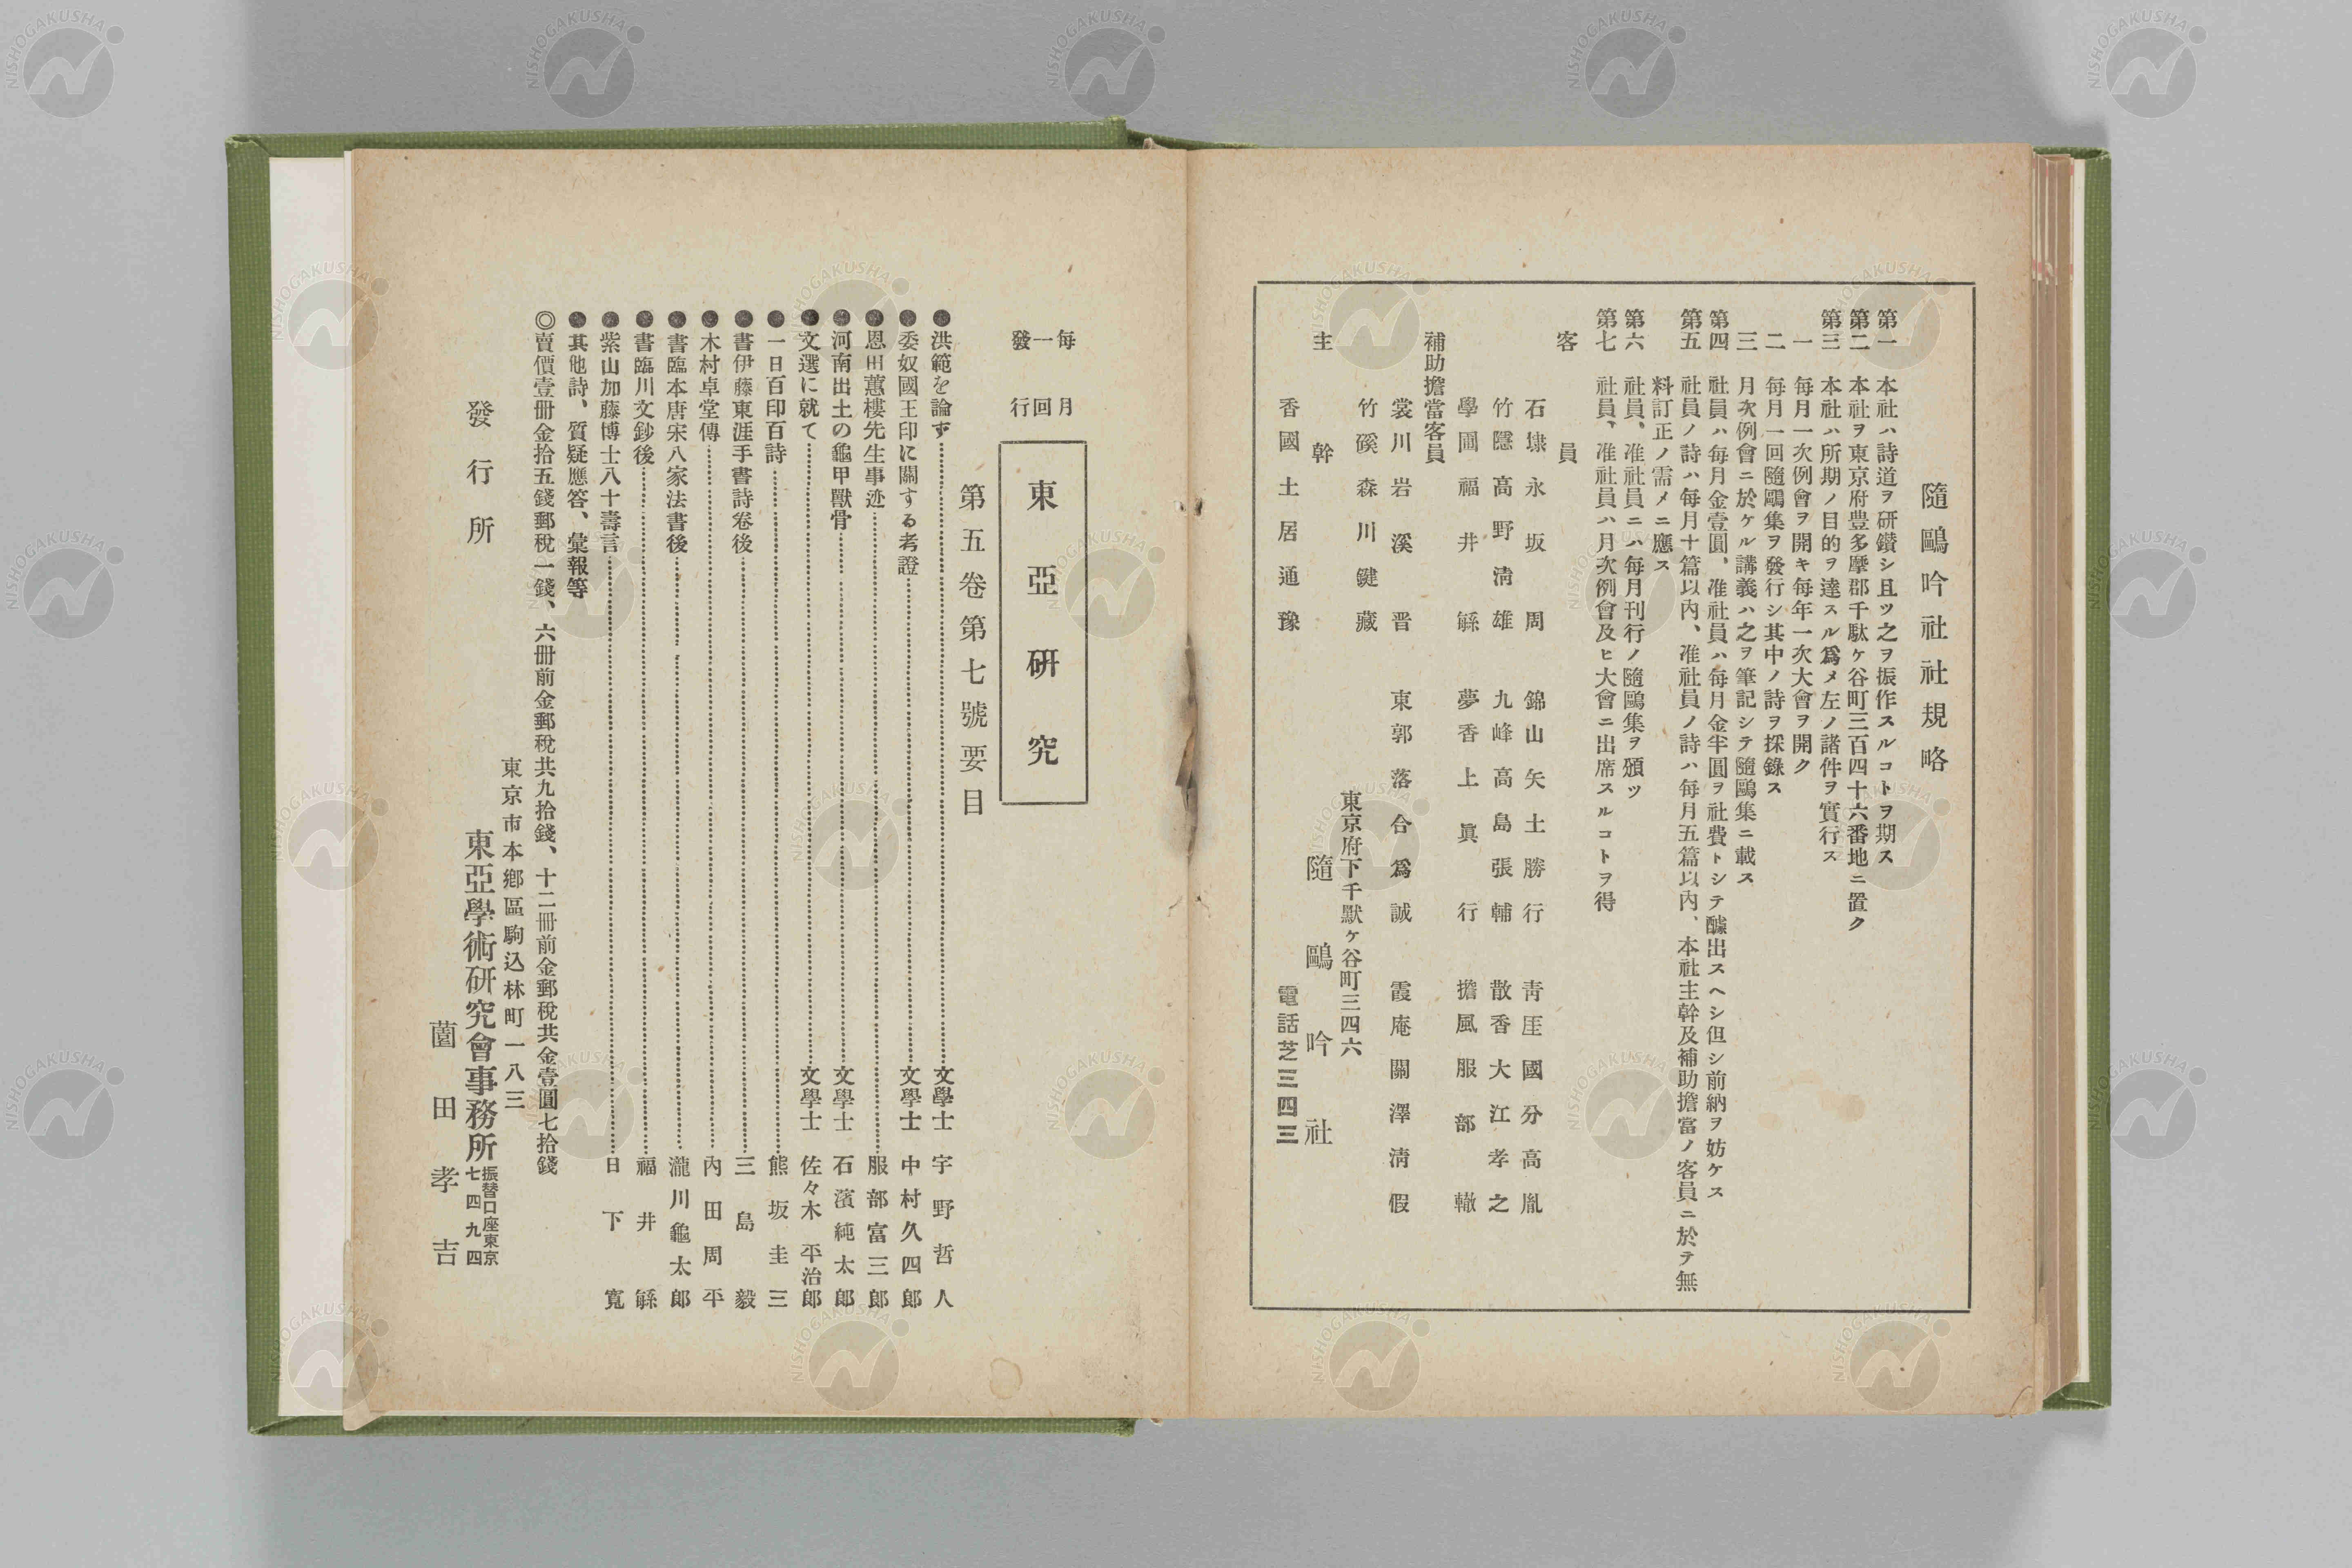 隨鷗吟社社規略
第一　本社ハ詩道ヲ研鑽シ且ツ之ヲ振作スルコトヲ期ス
第二　本社ヲ東京府豊多摩郡千駄ケ谷町三百四十六番地ニ置ク
第三　本社ハ所期ノ目的ヲ達スル爲メ左ノ諸件ヲ實行ス
一　每月一次例會ヲ開キ每年一次大會ヲ開ク
二　每月一回隨鷗集ヲ發行シ其中ノ詩ヲ採錄ス
三　月次例會ニ於ケル講義ハ之ヲ筆記シテ隨鷗集ニ載ス
第四　社員ハ每月金壹圓、准社員ハ每月金半圓ヲ社費トシテ醵出スヘシ但シ前納ヲ妨ケス
第五　社員ノ詩ハ每月十篇以內、准社員ノ詩ハ每月五篇以內、本社主幹及補助擔當ノ客員ニ於テ無
料訂正ノ需メニ應ス
第六　社員、准社員ニハ每月刊行ノ隨鷗集ヲ頒ツ
第七　社員、准社員ハ月次例會及ヒ大會ニ出席スルコトヲ得
客員
石埭永坂周　錦山矢土勝行　靑厓國分高胤
竹隱高野淸雄　九峰高島張輔　散香大江孝之
學圃福井繇　夢香上眞行　擔風服部轍
補助擔當客員
裳川岩溪晋　東郭落合爲誠　霞庵關澤淸假
竹磎森川鍵藏
東京府下千駄ケ谷町三四六
主幹
隨鷗吟社
香國土居通豫
電話芝三四三
每月一回發行
東亞研究
第五卷第七號要目
●洪範を論ず　文學士　宇野哲人
●委奴國王印に關する考證　文學士　中村久四郎
●恩田蕙樓先生事迹　服部富三郎
●河南出土の龜甲獸骨　文學士　石濱純太郎
●文選に就て　文學士　佐々木平治郎
●一日百印百詩　熊坂圭三
●書伊藤東涯手書詩卷後　三島毅
●木村卓堂傳　內田周平
●書臨本唐宋八家法書後　瀧川龜太郎
●書臨川文鈔後　福井繇
●紫山加藤博士八十壽言　日下寬
●其他詩、質疑應答、彙報等
◎賣價壹冊金拾五錢郵稅一錢、六冊前金郵稅共九拾錢、十二冊前金郵稅共金壹圓七拾錢
東京市本鄕區駒込林町一八三
發行所
東亞學術研究會事務所
振替口座東京
七四九四
薗田孝吉
NISHOGAKUSHA